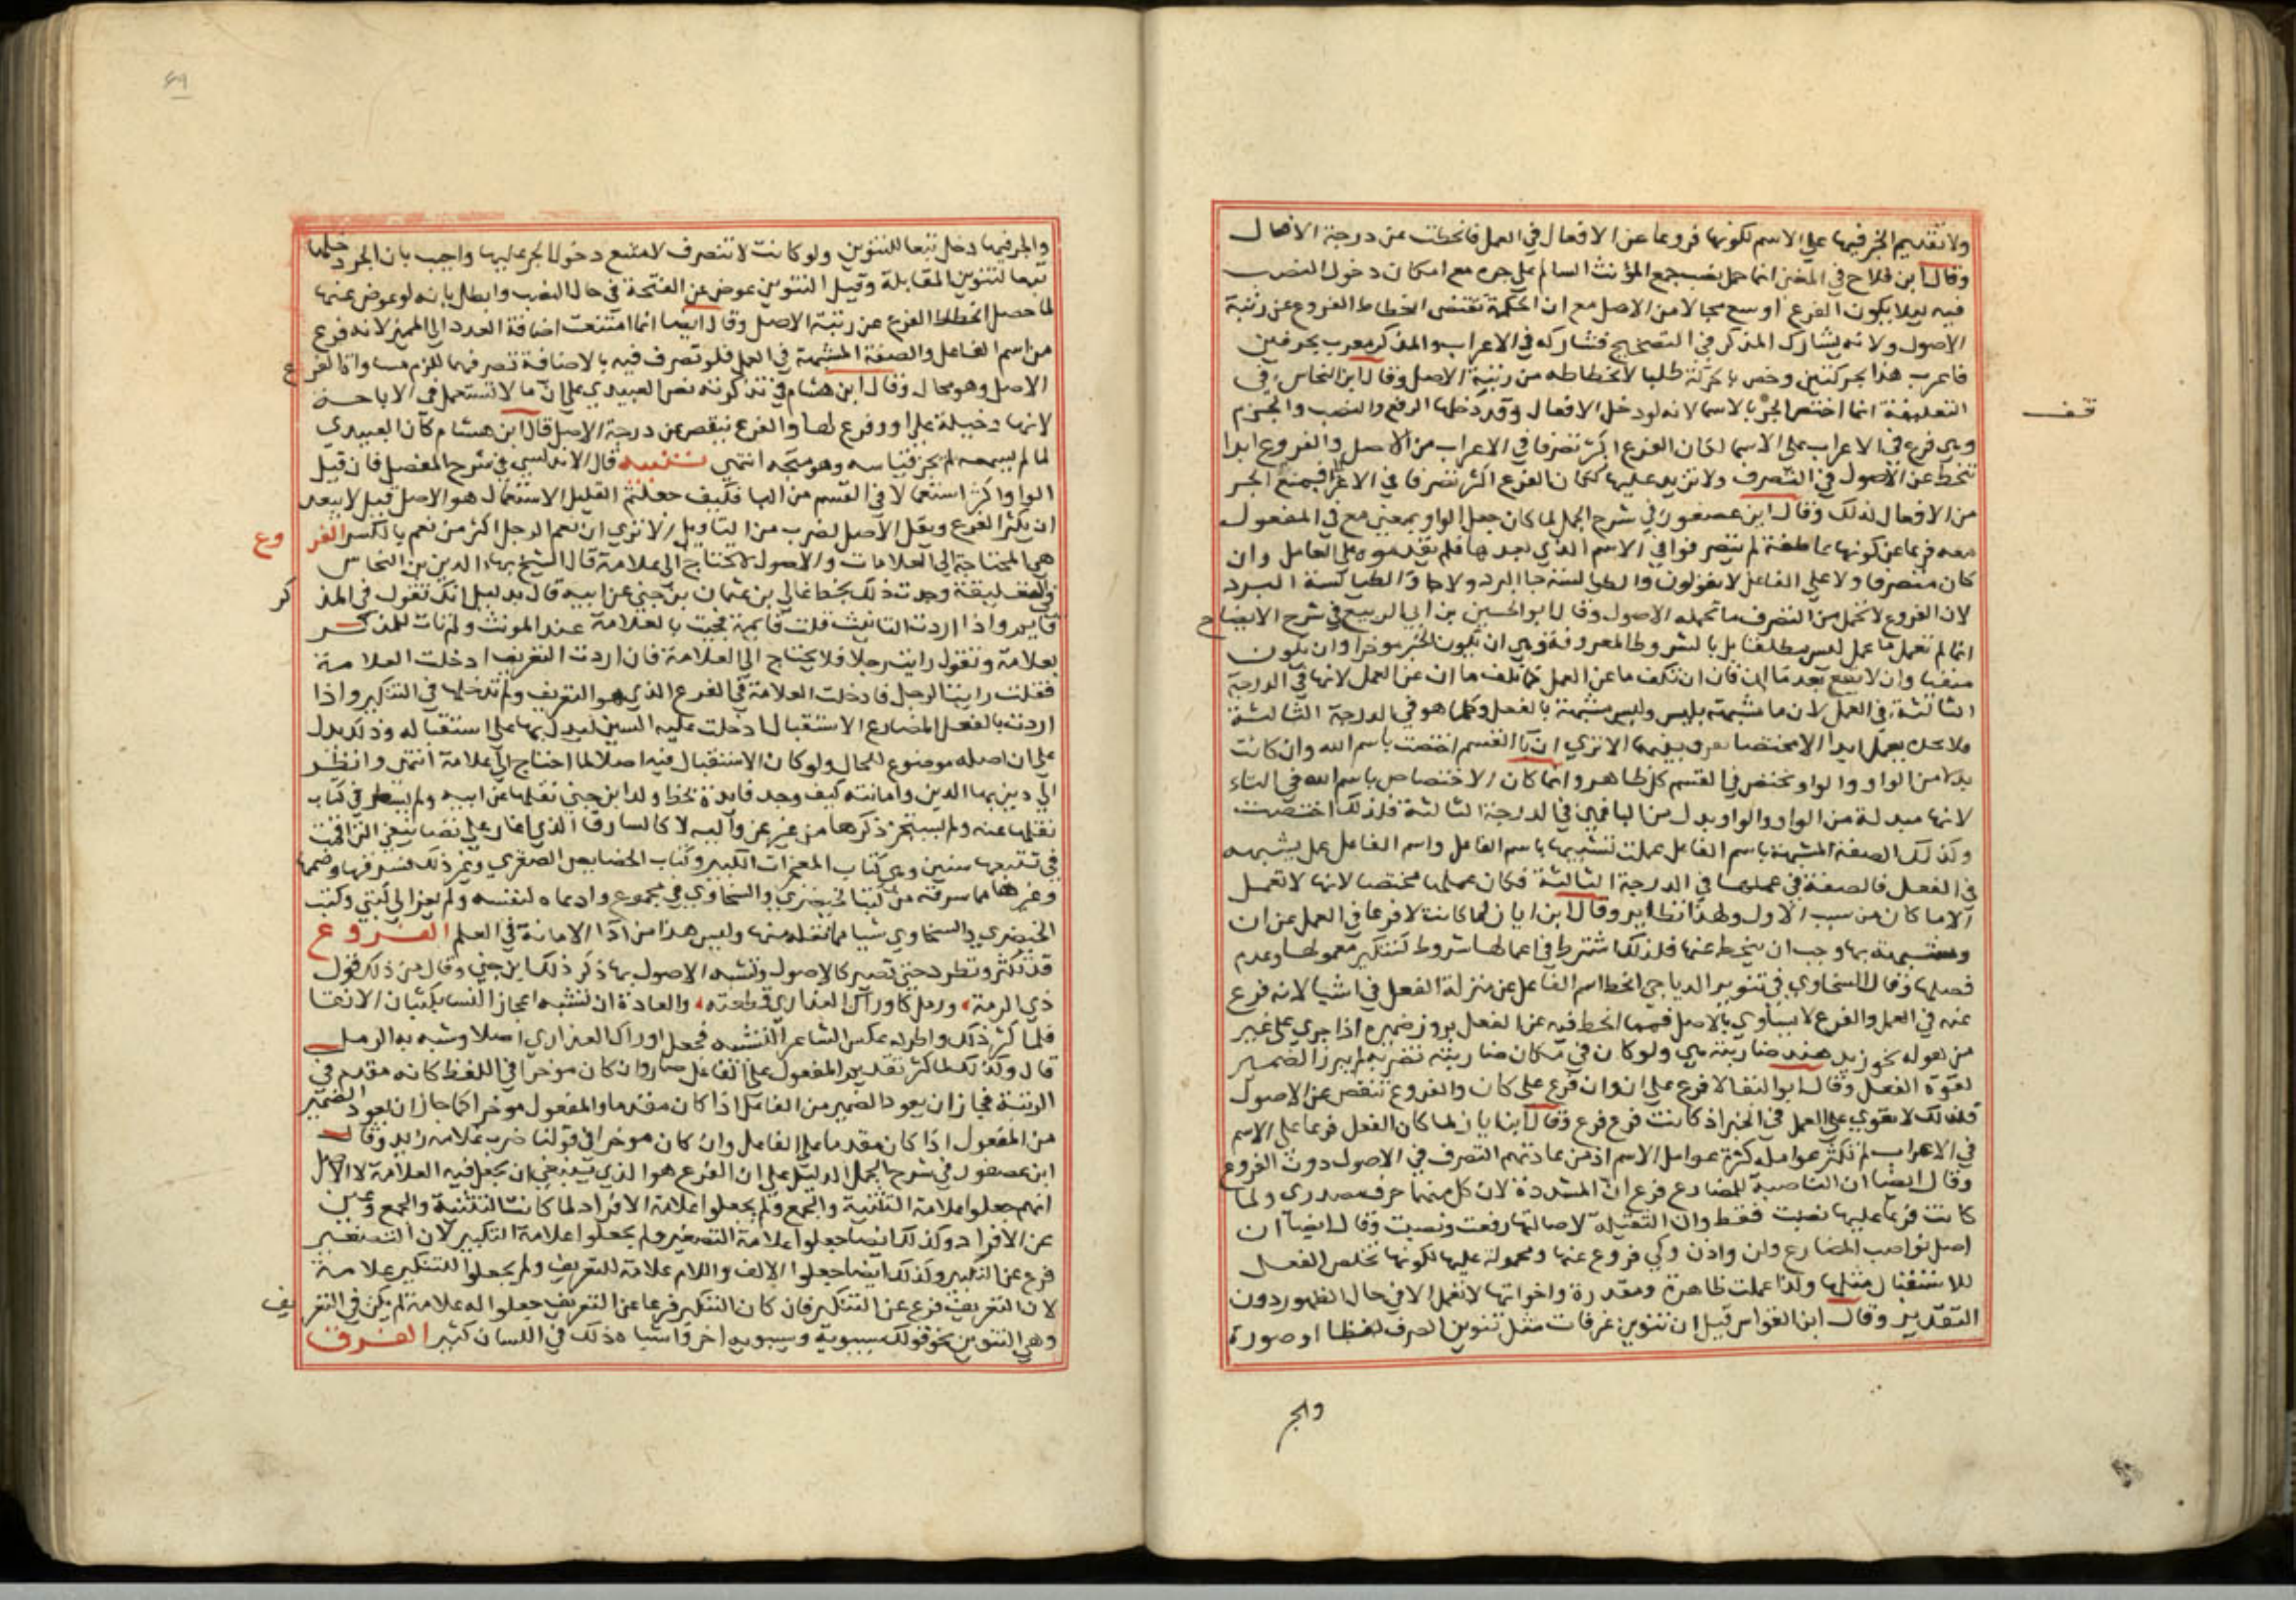 ولا تقديم الخبر فيها على الاسم لكونها فروعا عن الافعال في العمل فانحطت عن درجة الافعال
وقال ابن فلاح في المغنى انما حمل نصب جمع المؤنث السالم على جره مع امكان دخول النصب
فيه ليلا يكون الفرع اوسع مجالا من الاصل مع ان الحكمة تقتضى انحطاط الفروع عن رتبة
الاصول ولانه يشارك المذكر في التصحيح فشاركه في الاعراب والمذكر معرب بحرفين
فاعرب هذا بحركتين وخص بالحركة طلبا لانحطاطه من رتبة الاصل وقال ابن النحاس في
التعليقة انما اختص الجر بالاسما لانه لو دخل الافعال وقد دخلها الرفع والنصب والجزم
قف
وهي فرع في الاعراب على الاسما لكان الفرع اكثر تصرفا في الاعراب من الاصل والفروع ابدا
تنحط عن الاصول في التصرف ولا تزيد عليها لكان الفرع اكثر تصرفا في الاعراب فمنع الجر
من الافعال لذلك وقال ابن عصفور في شرح الجمل لما كان جعل الواو بمعنى مع في المفعول
معه فرعا عن كونها عاطفة لم يتصرفوا في الاسم الذي بعدها فلم يقدموه على العامل وان
كان متصرفا ولا على الفاعل لا يقولون والطيالسة جا البرد ولا جا والطيالسة البرد
لان الفروع لا تحمل من التصرف ما تحمله الاصول وقال ابو الحسين بن ابي الربيع في شرح الايضاح
انما لم تعمل ما عمل ليس مطلقا بل بالشروط المعروفة وهي ان يكون الخبر موخرا وان يكون
منفيا وان لا يقع بعد ما ان فان ان تكف ما عن العمل كما تكف ما ان عن العمل لانها في الدرجة
الثالثة في العمل لان ما مشبهة بليس وليس مشبهة بالفعل وكلما هو في الدرجة الثالثة
فلا تجده يعمل ابدا الا مختصا الا ترى ان تا القسم اختصت باسم الله وان كانت
بدلا من الواو والواو تختص في القسم كل ظاهر وانما كان الاختصاص باسم الله في التاء
لانها مبدلة من الواو والواو بدل من البا فهي في الدرجة الثالثة فلذلك اختصت
وكذلك الصفة المشبهة باسم الفاعل عملت لتشبيهها باسم الفاعل واسم الفاعل عمل بشبهه
في الفعل فالصفة في عملها في الدرجة الثالثة فكان عملها مختصا لانها لا تعمل
الا ما كان من سبب الاول ولهذا نظاير وقال ابن اياز لما كانت لا فرعا في العمل عن ان
ومشبهة بها وجب ان ينحط عنها فلذلك اشترط في اعمالها شروط كتنكير معمولها وعدم
فصلها وقال السخاوي في تنوير الدياجي انحط اسم الفاعل عن منزلة الفعل في اشيا لانه فرع
عنه في العمل والفرع لا يساوي الاصل فمما انحط فيه عن الفعل بروز ضميره اذا جرى على غير
من هو له نحو زيد هند ضاربته هي ولو كان في مكان ضاربته تضربه لم يبرز الضمير
لقوة الفعل وقال ابو البقا لا فرع على ان وان فرع على كان والفروع تنقص عن الاصول
فلذلك لا تقوى على العمل في الخبر اذ كانت فرع فرع وقال ابن اياز لما كان الفعل فرعا على الاسم
في الاعراب لم تكثر عوامله كثرة عوامل الاسم اذ من عادتهم التصرف في الاصول دون الفروع
وقال ايضا ان الناصبة للمضارع فرع ان المشددة لان كل منهما حرف مصدري ولما
كانت فرعا عليها نصبت فقط وان الثقيلة لاصالتها رفعت ونصبت وقال ايضا ان
اصل نواصب المضارع ولن واذن وكي فروع عنها ومحمولة عليها لكونها تخلص الفعل
للاستقبال مثلها ولذا عملت ظاهرة ومقدرة واخواتها لا تعمل الا في حال الظهور دون
التقدير وقال ابن القواس قيل ان تنوين عرفات مثل تنوين الصرف لفظا او صورة
والجر
والجر فيها دخل تبعا للتنوين ولو كانت لا تنصرف لامتنع دخول الجر عليها واجيب بان الجر دخلها
تبعا لتنوين المقابلة وقيل التنوين عوض عن الفتحة في حال النصب وابطل بانه لو عوض عنها
لما حصل انحطاط الفرع عن رتبة الاصل وقال ايضا انما امتنعت اضافة العدد الى المميز لانه فرع
من اسم الفاعل والصفة المشبهة في العمل فلو تصرف فيه بالاضافة تصرفهما للزم مساواة الفرع
الاصل وهو محال وقال ابن هشام في تذكرته نص العبيدي على ان ما لا تستعمل في الاباحة
لانها دخيلة على او وفرع لها والفرع ينقص عن درجة الاصل قال ابن هشام كان العبيدي
لما لم يسمعه لم يجز قياسه وهو متجه انتهى تنبيه قال الاندلسي في شرح المفصل فان قيل
الواو اكثر استعمالا في القسم من البا فكيف جعلتم القليل الاستعمال هو الاصل قيل لا يبعد
ان يكثر الفرع ويقل الاصل لضرب من التاويل الا ترى ان نعم الرجل اكثر من نعم بالكسر الفروع
هي المحتاجة الى العلامات والاصول لا تحتاج الى علامة قال الشيخ بهاء الدين بن النحاس
في التعليقة وجدت ذلك بخط غالي بن عثمان بن جني عن ابيه قال بدليل انك تقول في المذكر
قايم واذا اردت التانيث قلت قايمة فجيت بالعلامة عند المونث ولم تات للمذكر
بعلامة وتقول رايت رجلا فلا يحتاج الى العلامة فان اردت التعريف ادخلت العلامة
فقلت رايت الرجل فادخلت العلامة في الفرع الذي هو التعريف ولم تدخلها في التنكير واذا
اردت بالفعل المضارع الاستقبال ادخلت عليه السين ليدل بها على استقباله وذلك يدل
على ان اصله موضوع للحال ولو كان الاستقبال فيه اصلا لما احتاج الى علامة انتهى وانظر
الى دين بها الدين وامانته كيف وجد فايدة بخط ولد ابن جني نقلها عن ابيه ولم تسطر في كتاب
نقلها عنه ولم يستجز ذكرها من غير عزو اليه لا كالسارق الذي اغار على تصانيفي التي اقمت
في تتبعها سنين وهي كتاب المعجزات الكبير وكتاب الخصايص الصغرى وغير ذلك فسرقها وضمها
وغيرها مما سرقه من كتب الخيضري والسخاوي في مجموع وادعاه لنفسه ولم يعز الى كتبي وكتب
الخيضري والسخاوي شيا مما نقله منها وليس هذا من اداء الامانة في العلم الفروع
قد تكثر وتطرد حتى تصير كالاصول وتشبه الاصول بها ذكر ذلك ابن جني وقال من ذلك قول
ذي الرمة ورمل كاوراك العذارى قطعته والعادة ان تشبه اعجاز النسا بكثبان الانقا
فلما كثر ذلك واطرد عكس الشاعر التشبيه فجعل اوراك العذارى اصلا وشبه به الرمل
قال وكذلك لما كثر تقديم المفعول على الفاعل صار وان كان موخرا في اللفظ كانه مقدم في
الرتبة فجاز ان يعود الضمير من الفاعل اذا كان مقدما والمفعول موخرا كما جاز ان يعود الضمير
من المفعول اذا كان مقدما على الفاعل وان كان موخرا في قولنا ضرب غلامه زيد وقال
ابن عصفور في شرح الجمل الدليل على ان الفرع هو الذي ينبغي ان يجعل فيه العلامة لا الاصل
انهم جعلوا علامة التثنية والجمع ولم يجعلوا علامة الافراد لما كانت التثنية والجمع فرعين
عن الافراد وكذلك ايضا جعلوا علامة التصغير ولم يجعلوا علامة التكبير لان التصغير
فرع عن التكبير وكذلك ايضا جعلوا الالف واللام علامة للتعريف ولم يجعلوا للتنكير علامة
لان التعريف فرع عن التنكير فان كان التنكير فرعا عن التعريف جعلوا له علامة لم تكن في التعريف
وهي التنوين نحو قولك سيبويه وسيبويه اخر واشباه ذلك في اللسان كثير الفرق